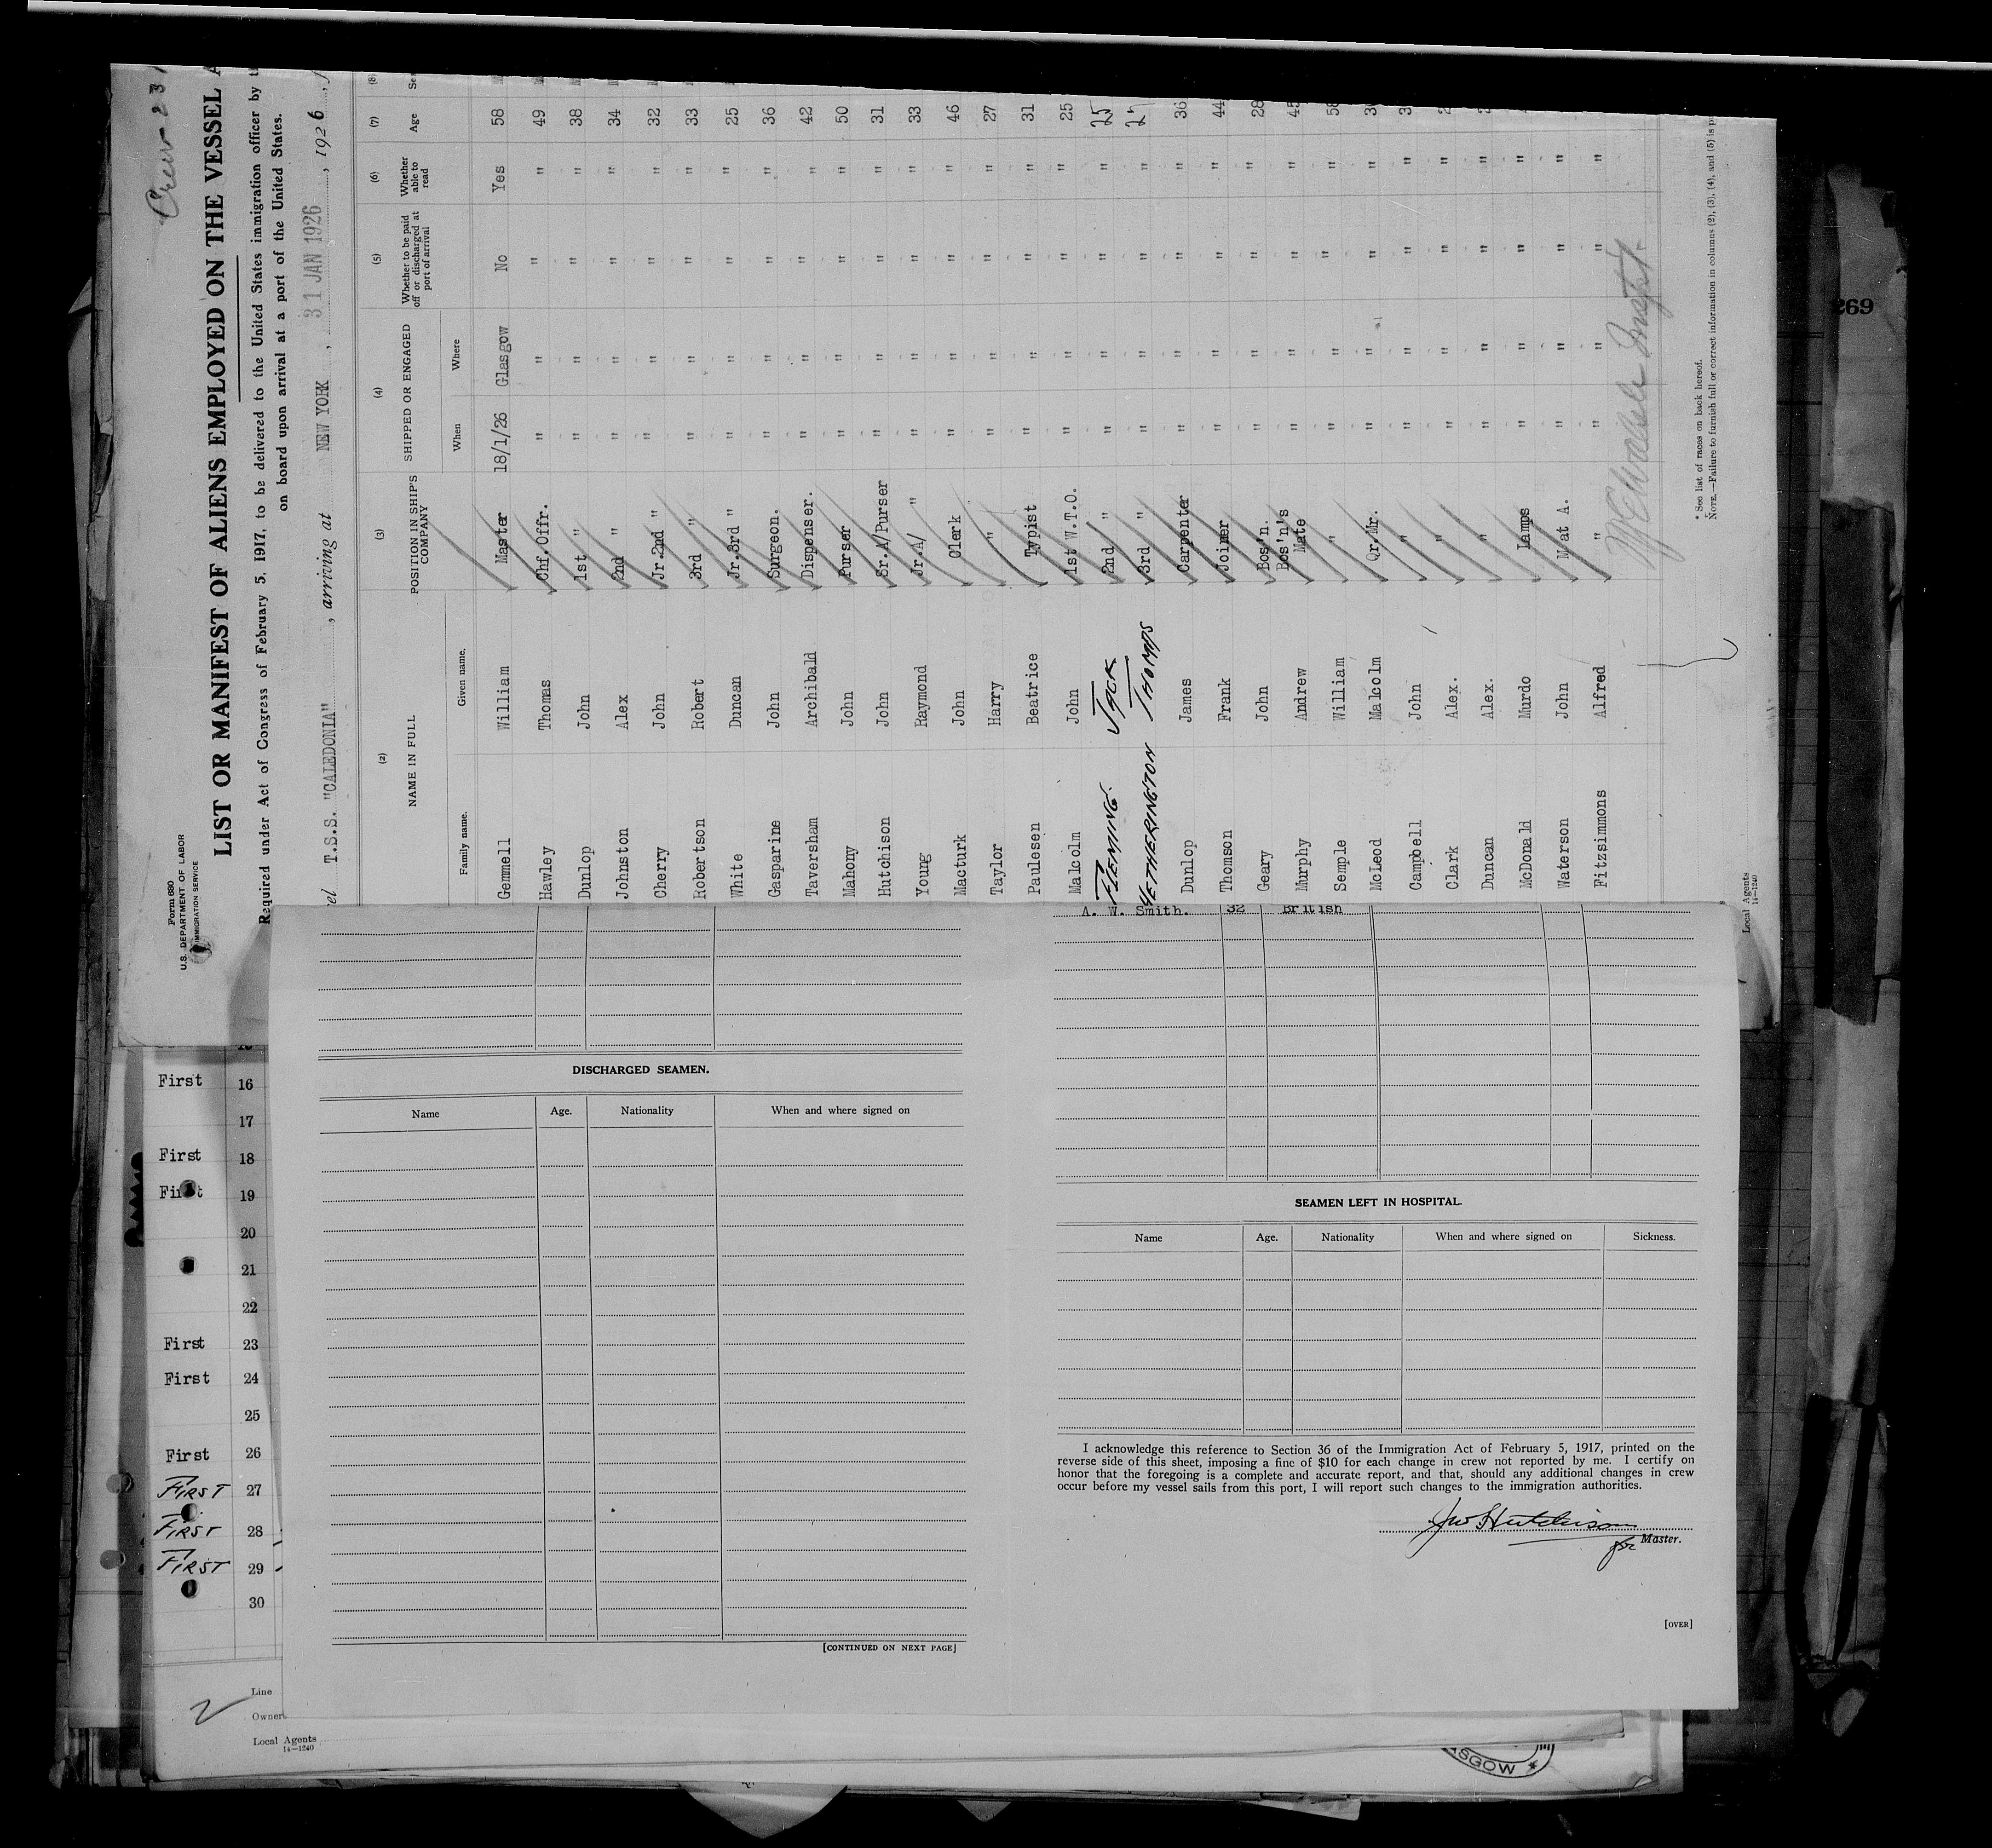 Crew 231
Form 680
U.S. DEPARTMENT OF LABOR
IMMIGRATION SERVICE
LIST OR MANIFEST OF ALIENS EMPLOYED ON THE VESSEL A
Required under Act of Congress of February 5, 1917, to be delivered to the United States immigration officer by t
on board upon arrival at a port of the United States.
el T.S.S. "CALEDONIA", arriving at NEW YORK, 31 JAN 1926, 1926,
(2) (3) (4) (5) (6) (7) (8)
NAME IN FULL POSITION IN SHIP'S COMPANY SHIPPED OR ENGAGED Whether to be paid off or discharged at port of arrival Whether able to read Age Se
Family name. Given name. When Where
Gemmell William Master 18/1/26 Glasgow No Yes 58
Hawley Thomas Chf.Offr. " " " " 49
Dunlop John 1st " " " " " 38
Johnston Alex 2nd " " " " " 34
Cherry John Jr 2nd " " " " " 32
Robertson Robert 3rd " " " " " 33
White Duncan Jr.3rd " " " " " 25
Gasparine John Surgeon. " " " " 36
Taversham Archibald Dispenser. " " " " 42
Mahony John Purser " " " " 50
Hutchison John Sr.A/Purser " " " " 31
Young Raymond Jr.A/ " " " " " 33
Macturk John Clerk " " " " 46
Taylor Harry " " " " " 27
Paulesen Beatrice Typist " " " " 31
Malcolm John 1st W.T.O. " " " " 25
FLEMING. JACK 2nd " " " " " 25
HETHERINGTON THOMAS 3rd " " " " " 27
Dunlop James Carpenter " " " " 36
Thomson Frank Joiner " " " " 44
Geary John Bos'n. " " " " 28
Murphy Andrew Bos'n's Mate " " " " 45
Semple William " " " " " 58
McLeod Malcolm Qr.Mr. " " " " 3
Campbell John " " " " " 3
Clark Alex. " " " " " 2
Duncan Alex. " " " " " 2
McDonald Murdo Lamps " " " "
Waterson John M at A. " " " "
Fitzsimmons Alfred " " " " "
* See list of races on back hereof.
NOTE.—Failure to furnish full or correct information in columns (2), (3), (4), and (5) is p
Local Agents
14—1240
269
A. W. Smith. 32 British
DISCHARGED SEAMEN.
Name Age. Nationality When and where signed on
[CONTINUED ON NEXT PAGE]
SEAMEN LEFT IN HOSPITAL.
Name Age. Nationality When and where signed on Sickness.
I acknowledge this reference to Section 36 of the Immigration Act of February 5, 1917, printed on the
reverse side of this sheet, imposing a fine of $10 for each change in crew not reported by me. I certify on
honor that the foregoing is a complete and accurate report, and that, should any additional changes in crew
occur before my vessel sails from this port, I will report such changes to the immigration authorities.
Jno Hutchison
for Master.
[OVER]
First 16
17
First 18
First 19
20
21
22
First 23
First 24
25
First 26
FIRST 27
FIRST 28
FIRST 29
30
2
Line
Owner
Local Agents
14—1240
ASGOW *